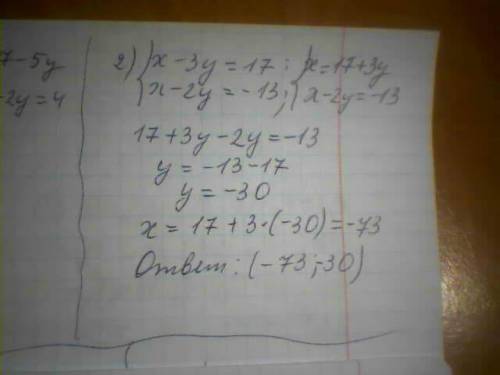 7-5y
-2y=4
2) { x-3y=17 ; { x=17+3y
x-2y=-13; x-2y=-13
17+3y-2y=-13
y=-13-17
y=-30
x=17+3·(-30)=-73
Ответ: (-73;-30)